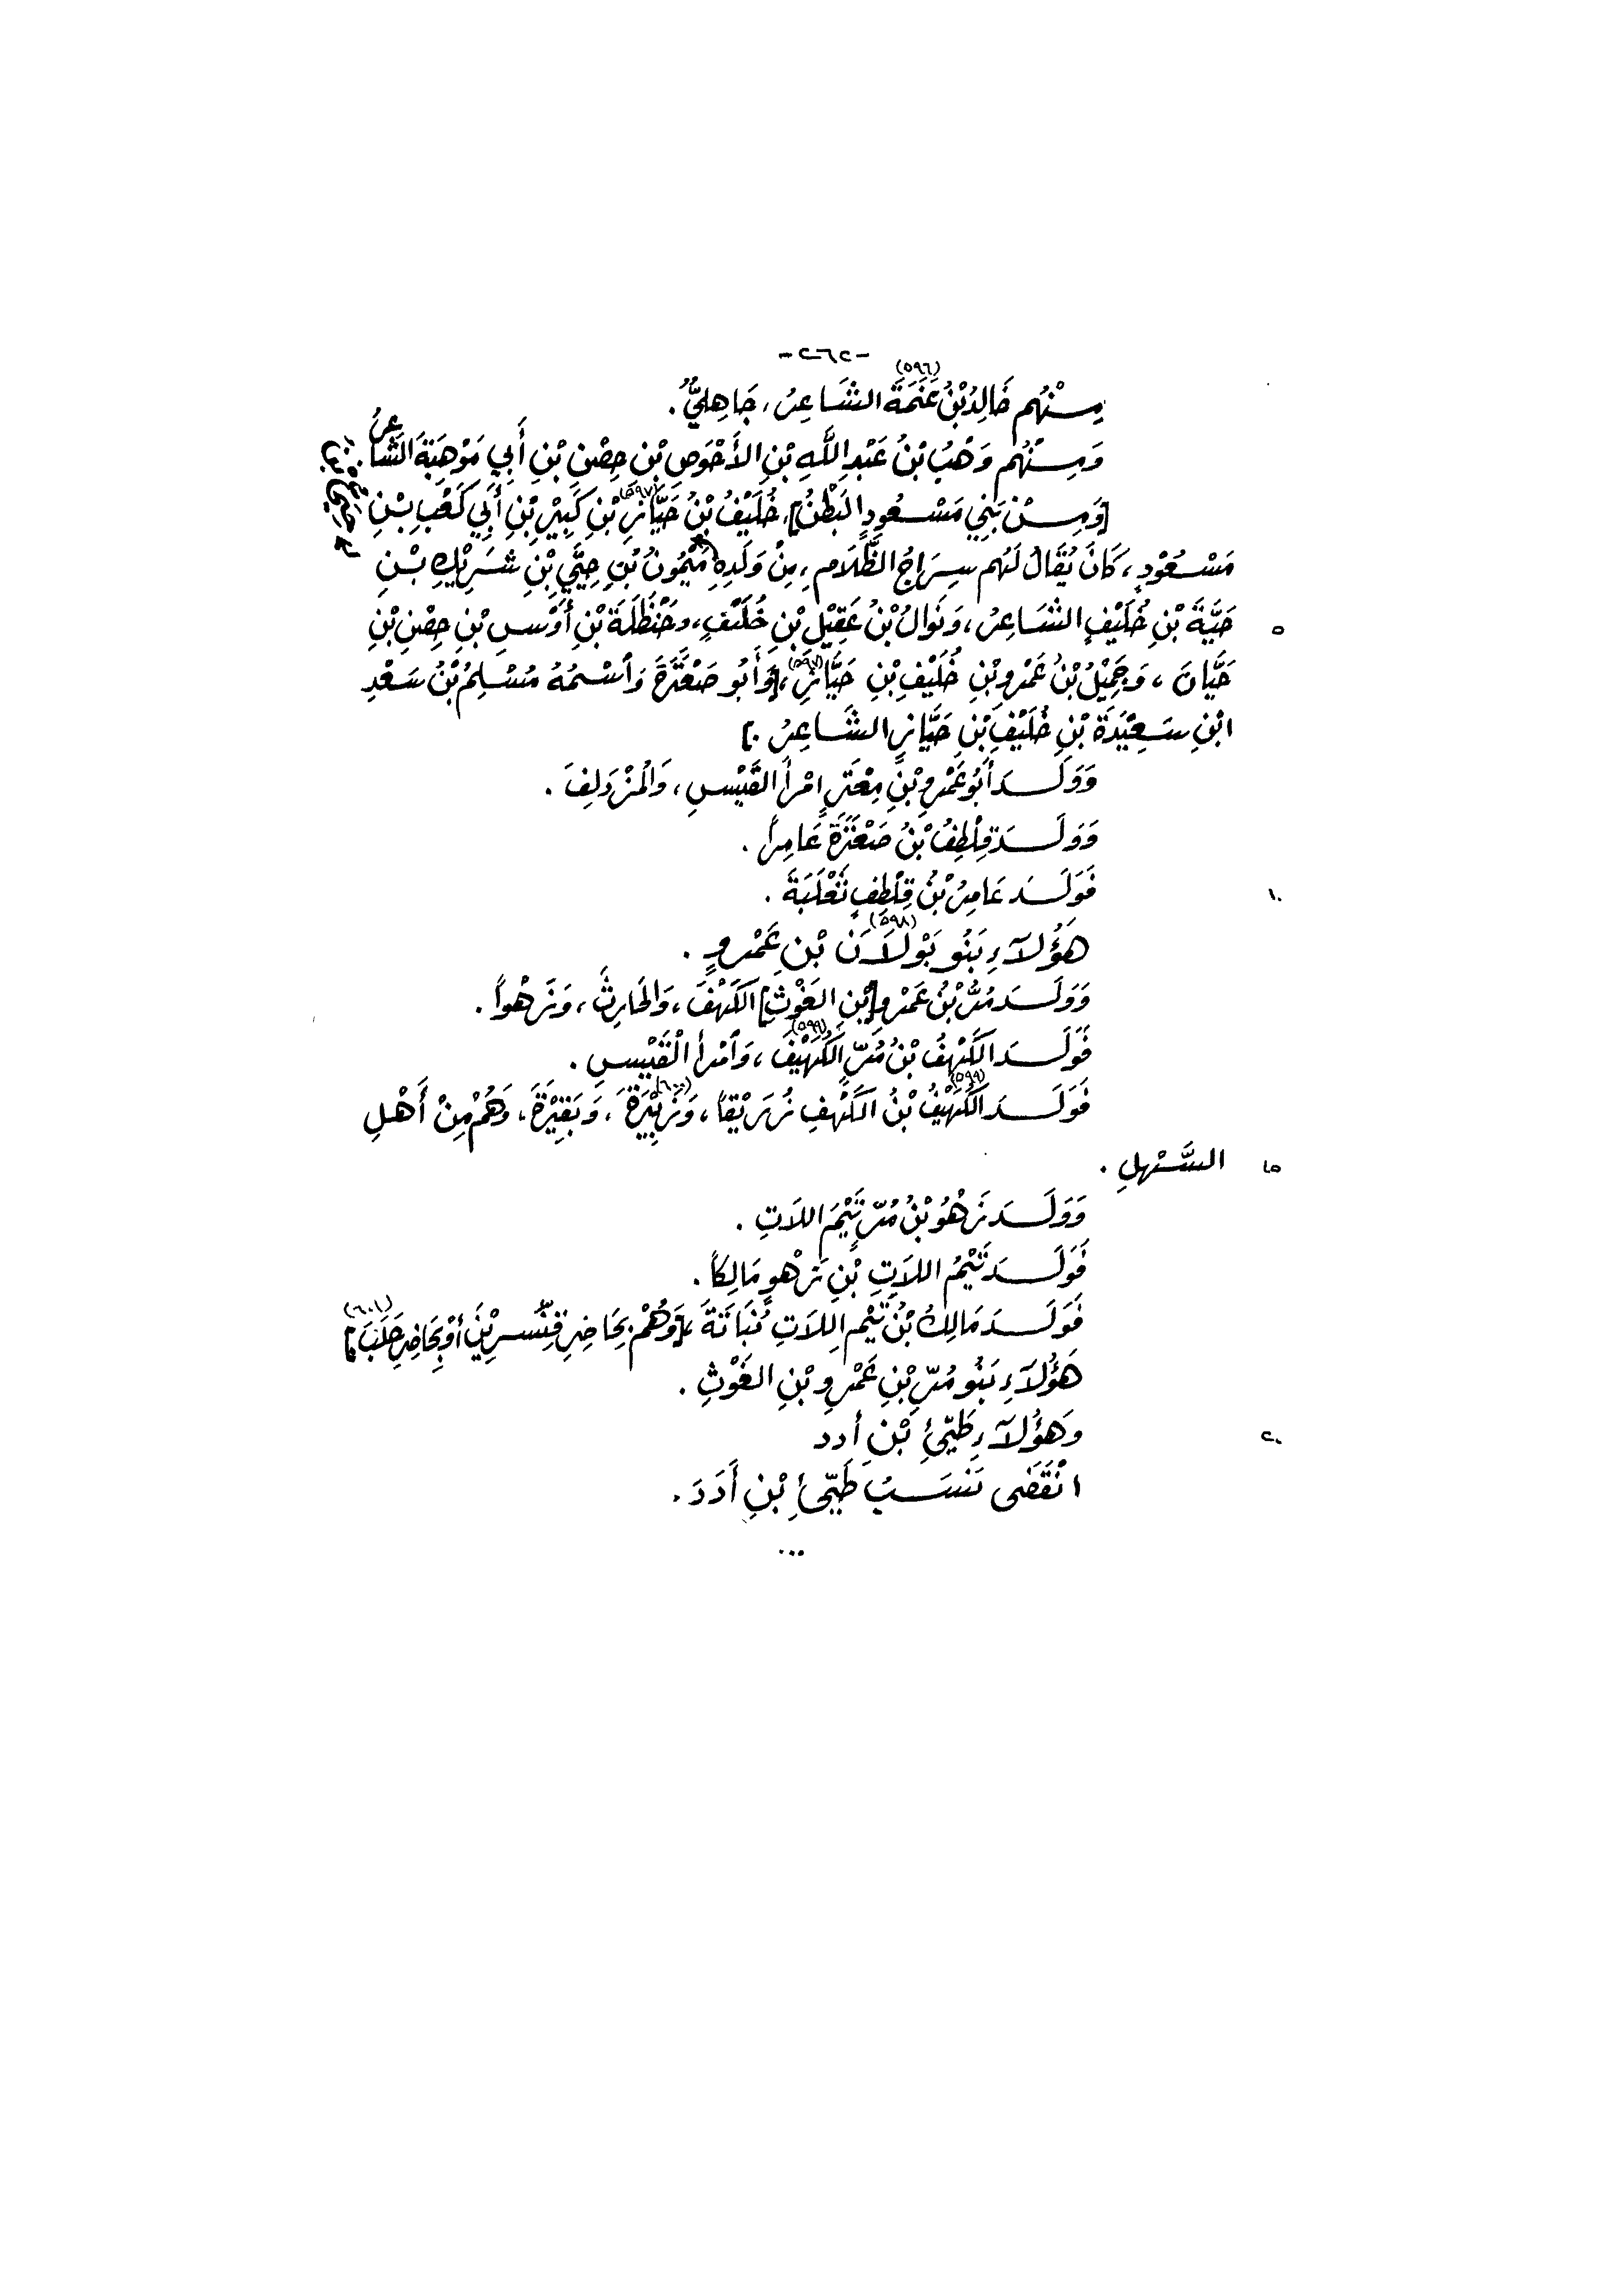 -٢٦٢-
مِنْهُم خَالِدُ بْنُ عَنَمَةَ (٥٩٦) الشَّاعِرُ، جَاهِلِيٌّ.
وَمِنْهُم وَهْبُ بْنُ عَبْدِ اللَّهِ بْنِ الأَحْوَصِ بْنِ حِصْنِ بْنِ أَبِي مَوْهِبَةَ الشَّاعِرُ.
[وَمِنْ بَنِي مَسْعُودٍ البَطْنُ]، خُلَيْفُ بْنُ حَيَّانِ (٥٩٧) بْنِ كَبِيْرِ بْنِ أَبِي كَعْبِ بْنِ
مَسْعُوْدٍ، كَانَ يُقَالُ لَهُم سِرَاجُ الظَّلَامِ، مِنْ وَلَدِهِ مَيْمُونُ بْنِ حِيَّيِ بْنِ شَرِيْكِ بْنِ
٥ حَيَّةَ بْنِ خُلَيْفٍ الشَّاعِرُ، وَنَوَالُ بْنُ عَقِيْلِ بْنِ خُلَيْفٍ، وحَنْظَلَةَ بْنِ أَوْسِ بْنِ حِصْنِ بْنِ
حَيَّانَ، وَجَمِيْلُ بْنُ عَمْرِو بْنِ خُلَيْفِ بْنِ حَيَّانِ (٥٩٧)، [وَأَبُو صَعْتَرَةَ وَاسْمُهُ مُسْلِمُ بْنُ سَعْدِ
ابْنِ سَعِيْدَةَ بْنِ خُلَيْفِ بْنِ حَيَّانِ الشَّاعِرُ.]
وَوَلَدَ أَبُو عَمْرِو بْنِ مِعْتَرٍ امْرأَ القَيْسِ، وَالمُزْدَلِفَ.
وَوَلَدَ قِلْطِفُ بْنُ صَعْتَرَةَ عَامِراً.
١٠ فَوَلَدَ عَامِرُ بْنُ قِلْطِفٍ ثَعْلَبَةَ.
هَؤُلآءِ بَنُو بَوْلَانَ (٥٩٨) بْنِ عَمْرٍو.
وَوَلَدَ مُرُّ بْنُ عَمْرِو [بْنِ الغَوْثِ] الكَهْفَ، وَالحَارِثَ، وَزَهْواً.
فَوَلَدَ الكَهْفُ بْنُ مُرٍّ الكُهَيْفَ (٥٩٩)، وَامْرأَ الْقَيْسِ.
فَوَلَدَ الكُهَيْفُ (٥٩٩) بْنُ الكَهْفِ زُرَيْقاً، وَزَبِيْرَةَ (٦٠٠)، وَبَقِيْرَةَ، وَهُمْ مِنْ أَهْلِ
١٥ السَّهْلِ.
وَوَلَدَ زَهْوُ بْنُ مُرٍّ تَيْمَ اللاَتِ.
فَوَلَدَ تَيْمُ اللاَتِ بْنِ زَهْوٍ مَالِكاً.
فَوَلَدَ مَالِكُ بْنُ تَيْمِ اللاَتِ نُبَاتَةَ، [وَهُمْ بِحَاضِرِ قِنَّسْرِيْنَ أَوْ بِحَاضِرِ حَلَبَ (٦٠١)]
هَؤُلآءِ بَنُو مُرِّ بْنِ عَمْرِو بْنِ الغَوْثِ.
٢٠ وَهَؤُلآءِ طَيِّئِ بْنِ أُدد
انْقَضَى نَسَبُ طَيِّئِ بْنِ أُدَدَ.
...